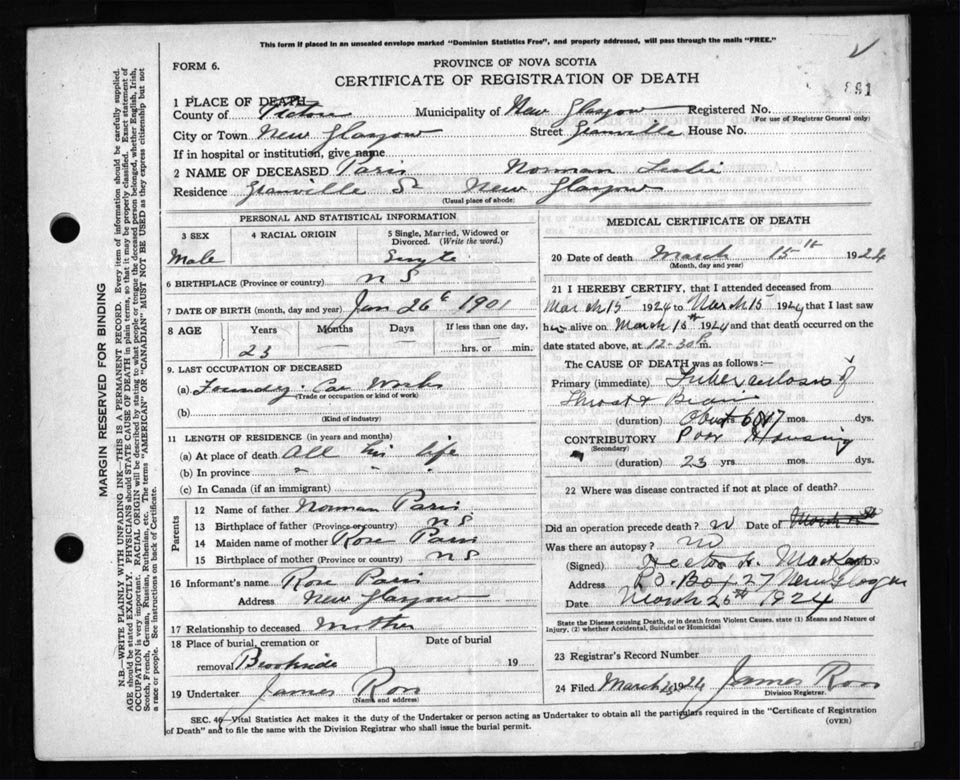 This form if placed in an unsealed envelope marked "Dominion Statistics Free", and properly addressed, will pass through the mails "FREE."
FORM 6.
PROVINCE OF NOVA SCOTIA
CERTIFICATE OF REGISTRATION OF DEATH
891
1 PLACE OF DEATH
County of Pictou Municipality of New Glasgow Registered No.
(For use of Registrar General only)
City or Town New Glasgow Street Granville House No.
If in hospital or institution, give name
2 NAME OF DECEASED Paris Norman Leslie
Residence Granville St New Glasgow
(Usual place of abode)
PERSONAL AND STATISTICAL INFORMATION
3 SEX
Male
4 RACIAL ORIGIN
5 Single, Married, Widowed or Divorced. (Write the word.)
6 BIRTHPLACE (Province or country) N S
7 DATE OF BIRTH (month, day and year) Jan 26 1901
8 AGE Years Months Days If less than one day,
23 hrs. or min.
9. LAST OCCUPATION OF DECEASED
(a) Foundry Car Works
(Trade or occupation or kind of work)
(b)
(Kind of industry)
11 LENGTH OF RESIDENCE (in years and months)
(a) At place of death All his life
(b) In province " "
(c) In Canada (if an immigrant)
Parents
12 Name of father Norman Paris
13 Birthplace of father (Province or country) N S
14 Maiden name of mother Rose Paris
15 Birthplace of mother (Province or country) N S
16 Informant's name Rose Paris
Address New Glasgow
17 Relationship to deceased Mother
18 Place of burial, cremation or Date of burial
removal Brookside 19
19 Undertaker James Ross
(Name and address)
MEDICAL CERTIFICATE OF DEATH
20 Date of death March 15th 1924
(Month, day and year)
21 I HEREBY CERTIFY, that I attended deceased from
March 15 1924 to March 15 1924 that I last saw
him alive on March 15th 1924 and that death occurred on the
date stated above, at 12-30 P m.
The CAUSE OF DEATH was as follows:—
Primary (immediate) Tuberculosis of
Throat &
(duration) mos. dys.
CONTRIBUTORY Poor Housing
(Secondary)
(duration) 23 yrs mos. dys.
22 Where was disease contracted if not at place of death?
Did an operation precede death? no Date of
Was there an autopsy? no
(Signed) Hector H. MacKay
Address P.O. Box 27 New Glasgow
Date March 25th 1924
State the Disease causing Death, or in death from Violent Causes, state (1) Means and Nature of Injury, (2) whether Accidental, Suicidal or Homicidal
23 Registrar's Record Number
24 Filed March 1924 James Ross
Division Registrar.
SEC. 46—Vital Statistics Act makes it the duty of the Undertaker or person acting as Undertaker to obtain all the particulars required in the "Certificate of Registration
of Death" and to file the same with the Division Registrar who shall issue the burial permit.
(OVER)
MARGIN RESERVED FOR BINDING
N.B.—WRITE PLAINLY WITH UNFADING INK—THIS IS A PERMANENT RECORD. Every item of information should be carefully supplied.
AGE should be stated EXACTLY. PHYSICIANS should STATE CAUSE OF DEATH in plain terms, so that it may be properly classified. Exact statement of
OCCUPATION is very important. RACIAL ORIGIN will be described by stating to what people or tongue the deceased person belonged, whether English, Irish,
Scotch, French, German, Russian, Ruthenian, etc. The terms "AMERICAN" OR "CANADIAN" MUST NOT BE USED as they express citizenship but not
a race or people. See instructions on back of Certificate.